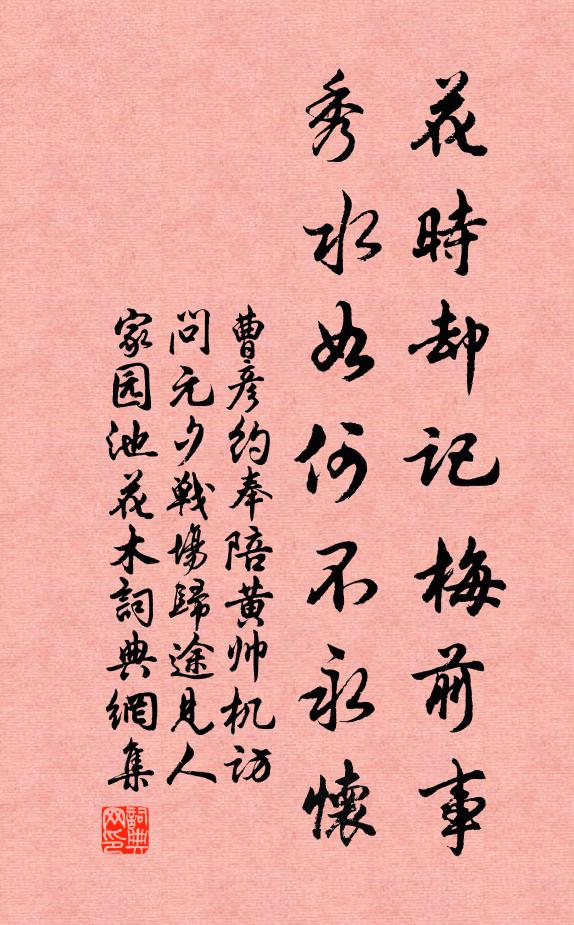 花時却記梅前事
秀水如何不永懷
曹彦約奉陪黄帅机访
問元夕戰場歸途見人
家园池花木詞典網集
詞典
网印